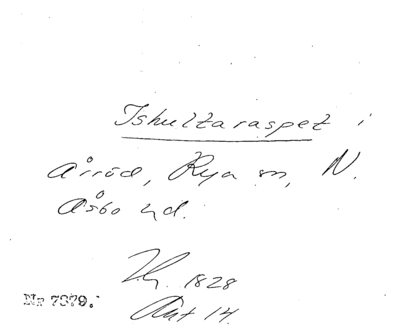 Ishultaraspet i
Årröd, Rya sn, N.
Åsbo hd.
1828
14.
Nr 7379.